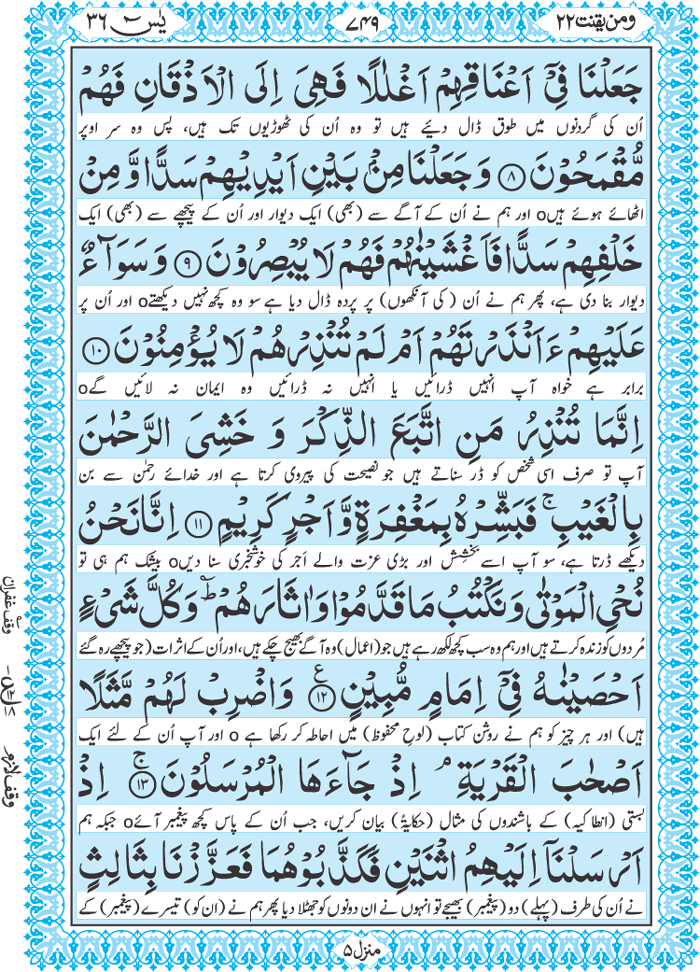 ومن يقنت ٢٢
٧٤٩
يٰسٓ ٣٦
جَعَلْنَا فِيْۤ اَعْنَاقِهِمْ اَغْلٰلًا فَهِيَ اِلَى الْاَذْقَانِ فَهُمْ
اُن کی گردنوں میں طوق ڈال دیئے ہیں تو وہ اُن کی ٹھوڑیوں تک ہیں، پس وہ سر اوپر
مُّقْمَحُوْنَ ٨ وَجَعَلْنَا مِنْۢ بَيْنِ اَيْدِيْهِمْ سَدًّا وَّ مِنْ
اٹھائے ہوئے ہیںo اور ہم نے اُن کے آگے سے (بھی) ایک دیوار اور اُن کے پیچھے سے (بھی) ایک
خَلْفِهِمْ سَدًّا فَاَغْشَيْنٰهُمْ فَهُمْ لَا يُبْصِرُوْنَ ٩ وَسَوَآءٌ
دیوار بنا دی ہے، پھر ہم نے اُن (کی آنکھوں) پر پردہ ڈال دیا ہے سو وہ کچھ نہیں دیکھتےo اور اُن پر
عَلَيْهِمْ ءَاَنْذَرْتَهُمْ اَمْ لَمْ تُنْذِرْهُمْ لَا يُؤْمِنُوْنَ ١٠
برابر ہے خواہ آپ انہیں ڈرائیں یا انہیں نہ ڈرائیں وہ ایمان نہ لائیں گےo
اِنَّمَا تُنْذِرُ مَنِ اتَّبَعَ الذِّكْرَ وَ خَشِيَ الرَّحْمٰنَ
آپ تو صرف اسی شخص کو ڈر سناتے ہیں جو نصیحت کی پیروی کرتا ہے اور خدائے رحمٰن سے بن
بِالْغَيْبِ ۚ فَبَشِّرْهُ بِمَغْفِرَةٍ وَّ اَجْرٍ كَرِيْمٍ ١١ اِنَّا نَحْنُ
دیکھے ڈرتا ہے، سو آپ اسے بخشِش اور بڑی عزت والے اَجر کی خوشخبری سنا دیںo بیشک ہم ہی تو
نُحْيِ الْمَوْتٰى وَنَكْتُبُ مَا قَدَّمُوْا وَاٰثَارَهُمْ ؕ وَكُلَّ شَيْءٍ
مُردوں کو زندہ کرتے ہیں اور ہم وہ سب کچھ لکھ رہے ہیں جو (اعمال) وہ آگے بھیج چکے ہیں، اور اُن کے اثرات (جو پیچھے رہ گئے
اَحْصَيْنٰهُ فِيْۤ اِمَامٍ مُّبِيْنٍ ١٢ ع وَاضْرِبْ لَهُمْ مَّثَلًا
ہیں) اور ہر چیز کو ہم نے روشن کتاب (لوحِ محفوظ) میں احاطہ کر رکھا ہے o اور آپ اُن کے لئے ایک
اَصْحٰبَ الْقَرْيَةِ ۘ اِذْ جَآءَهَا الْمُرْسَلُوْنَ ١٣ ۚ اِذْ
بستی (انطاکیہ) کے باشندوں کی مثال (حکایۃً) بیان کریں، جب اُن کے پاس کچھ پیغمبر آئےo جبکہ ہم
اَرْسَلْنَاۤ اِلَيْهِمُ اثْنَيْنِ فَكَذَّبُوْهُمَا فَعَزَّزْنَا بِثَالِثٍ
نے اُن کی طرف (پہلے) دو (پیغمبر) بھیجے تو انہوں نے ان دونوں کو جھٹلا دیا پھر ہم نے (ان کو) تیسرے (پیغمبر) کے
وقف غفران
وقف لازم
منزل ٥